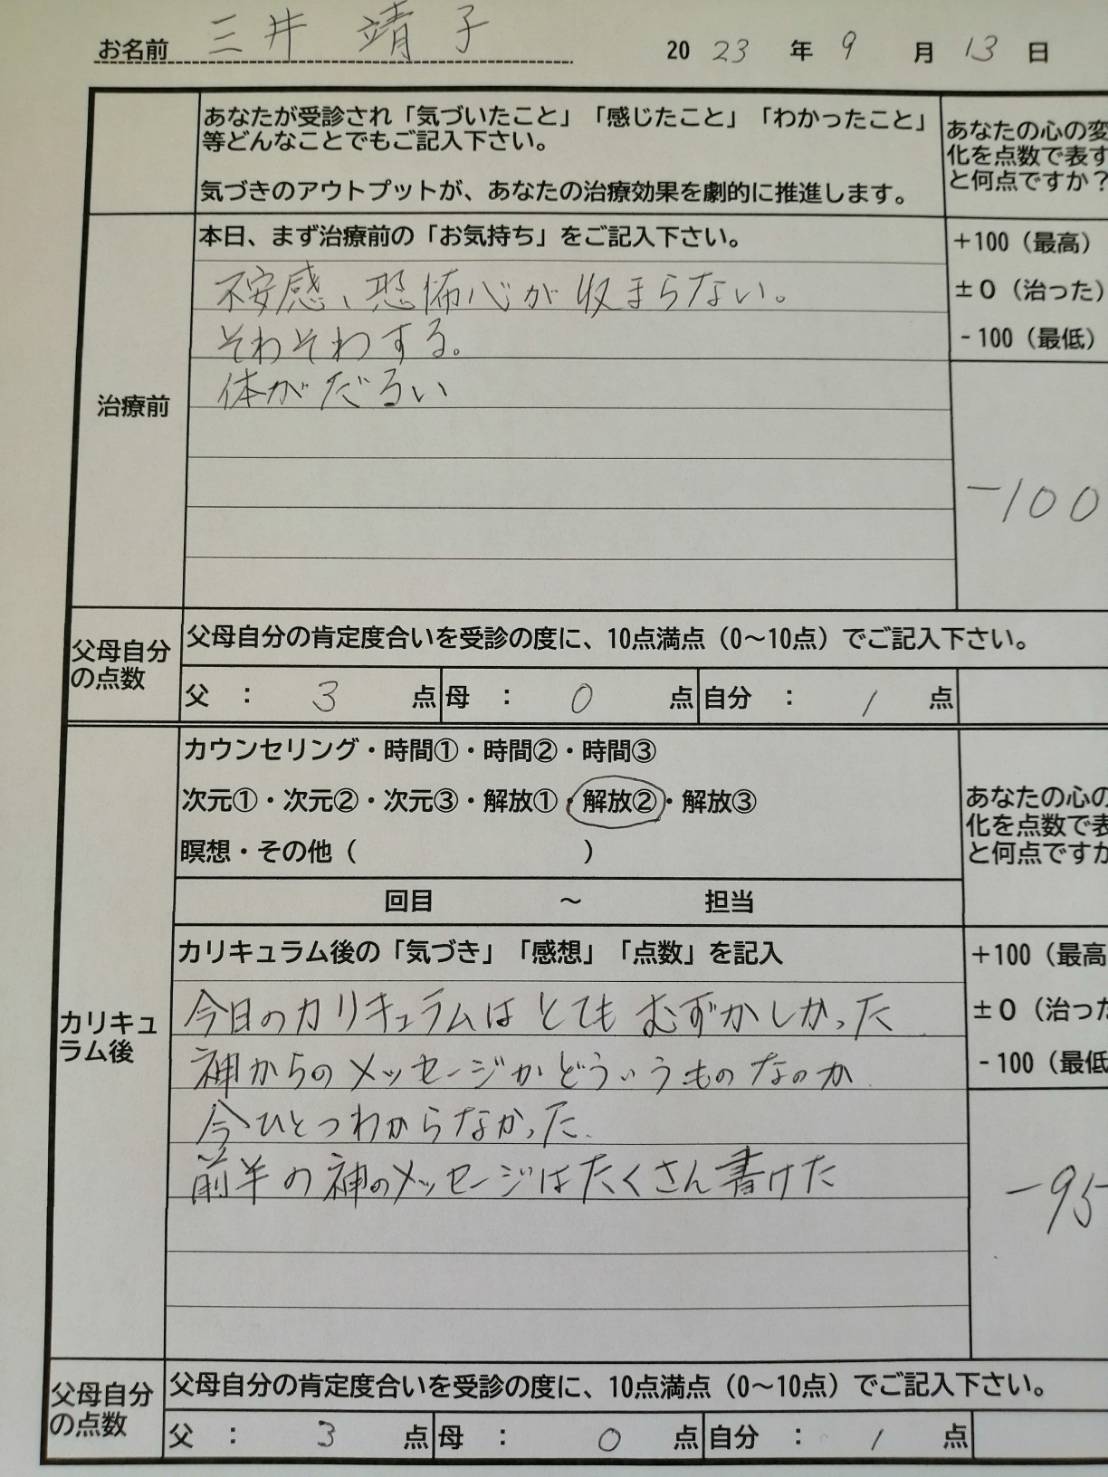 お名前 三井 靖子 2023年9月13日
あなたが受診され「気づいたこと」「感じたこと」「わかったこと」
等どんなことでもご記入下さい。
気づきのアウトプットが、あなたの治療効果を劇的に推進します。
あなたの心の変
化を点数で表す
と何点ですか?
治療前
本日、まず治療前の「お気持ち」をご記入下さい。
不安感、恐怖心が収まらない。
そわそわする。
体がだるい
+100(最高)
±0(治った)
-100(最低)
-100
父母自分
の点数
父母自分の肯定度合いを受診の度に、10点満点(0〜10点)でご記入下さい。
父 : 3 点 母 : 0 点 自分 : 1 点
カウンセリング・時間①・時間②・時間③
次元①・次元②・次元③・解放①・解放②・解放③
瞑想・その他( )
回目 〜 担当
あなたの心の
化を点数で表
と何点ですか
カリキュ
ラム後
カリキュラム後の「気づき」「感想」「点数」を記入
今日のカリキュラムはとてもむずかしかった
神からのメッセージがどういうものなのか
今ひとつわからなかった.
前半の神のメッセージはたくさん書けた
+100(最高
±0(治った
-100(最低
-95
父母自分
の点数
父母自分の肯定度合いを受診の度に、10点満点(0〜10点)でご記入下さい。
父 : 3 点 母 : 0 点 自分 : 1 点